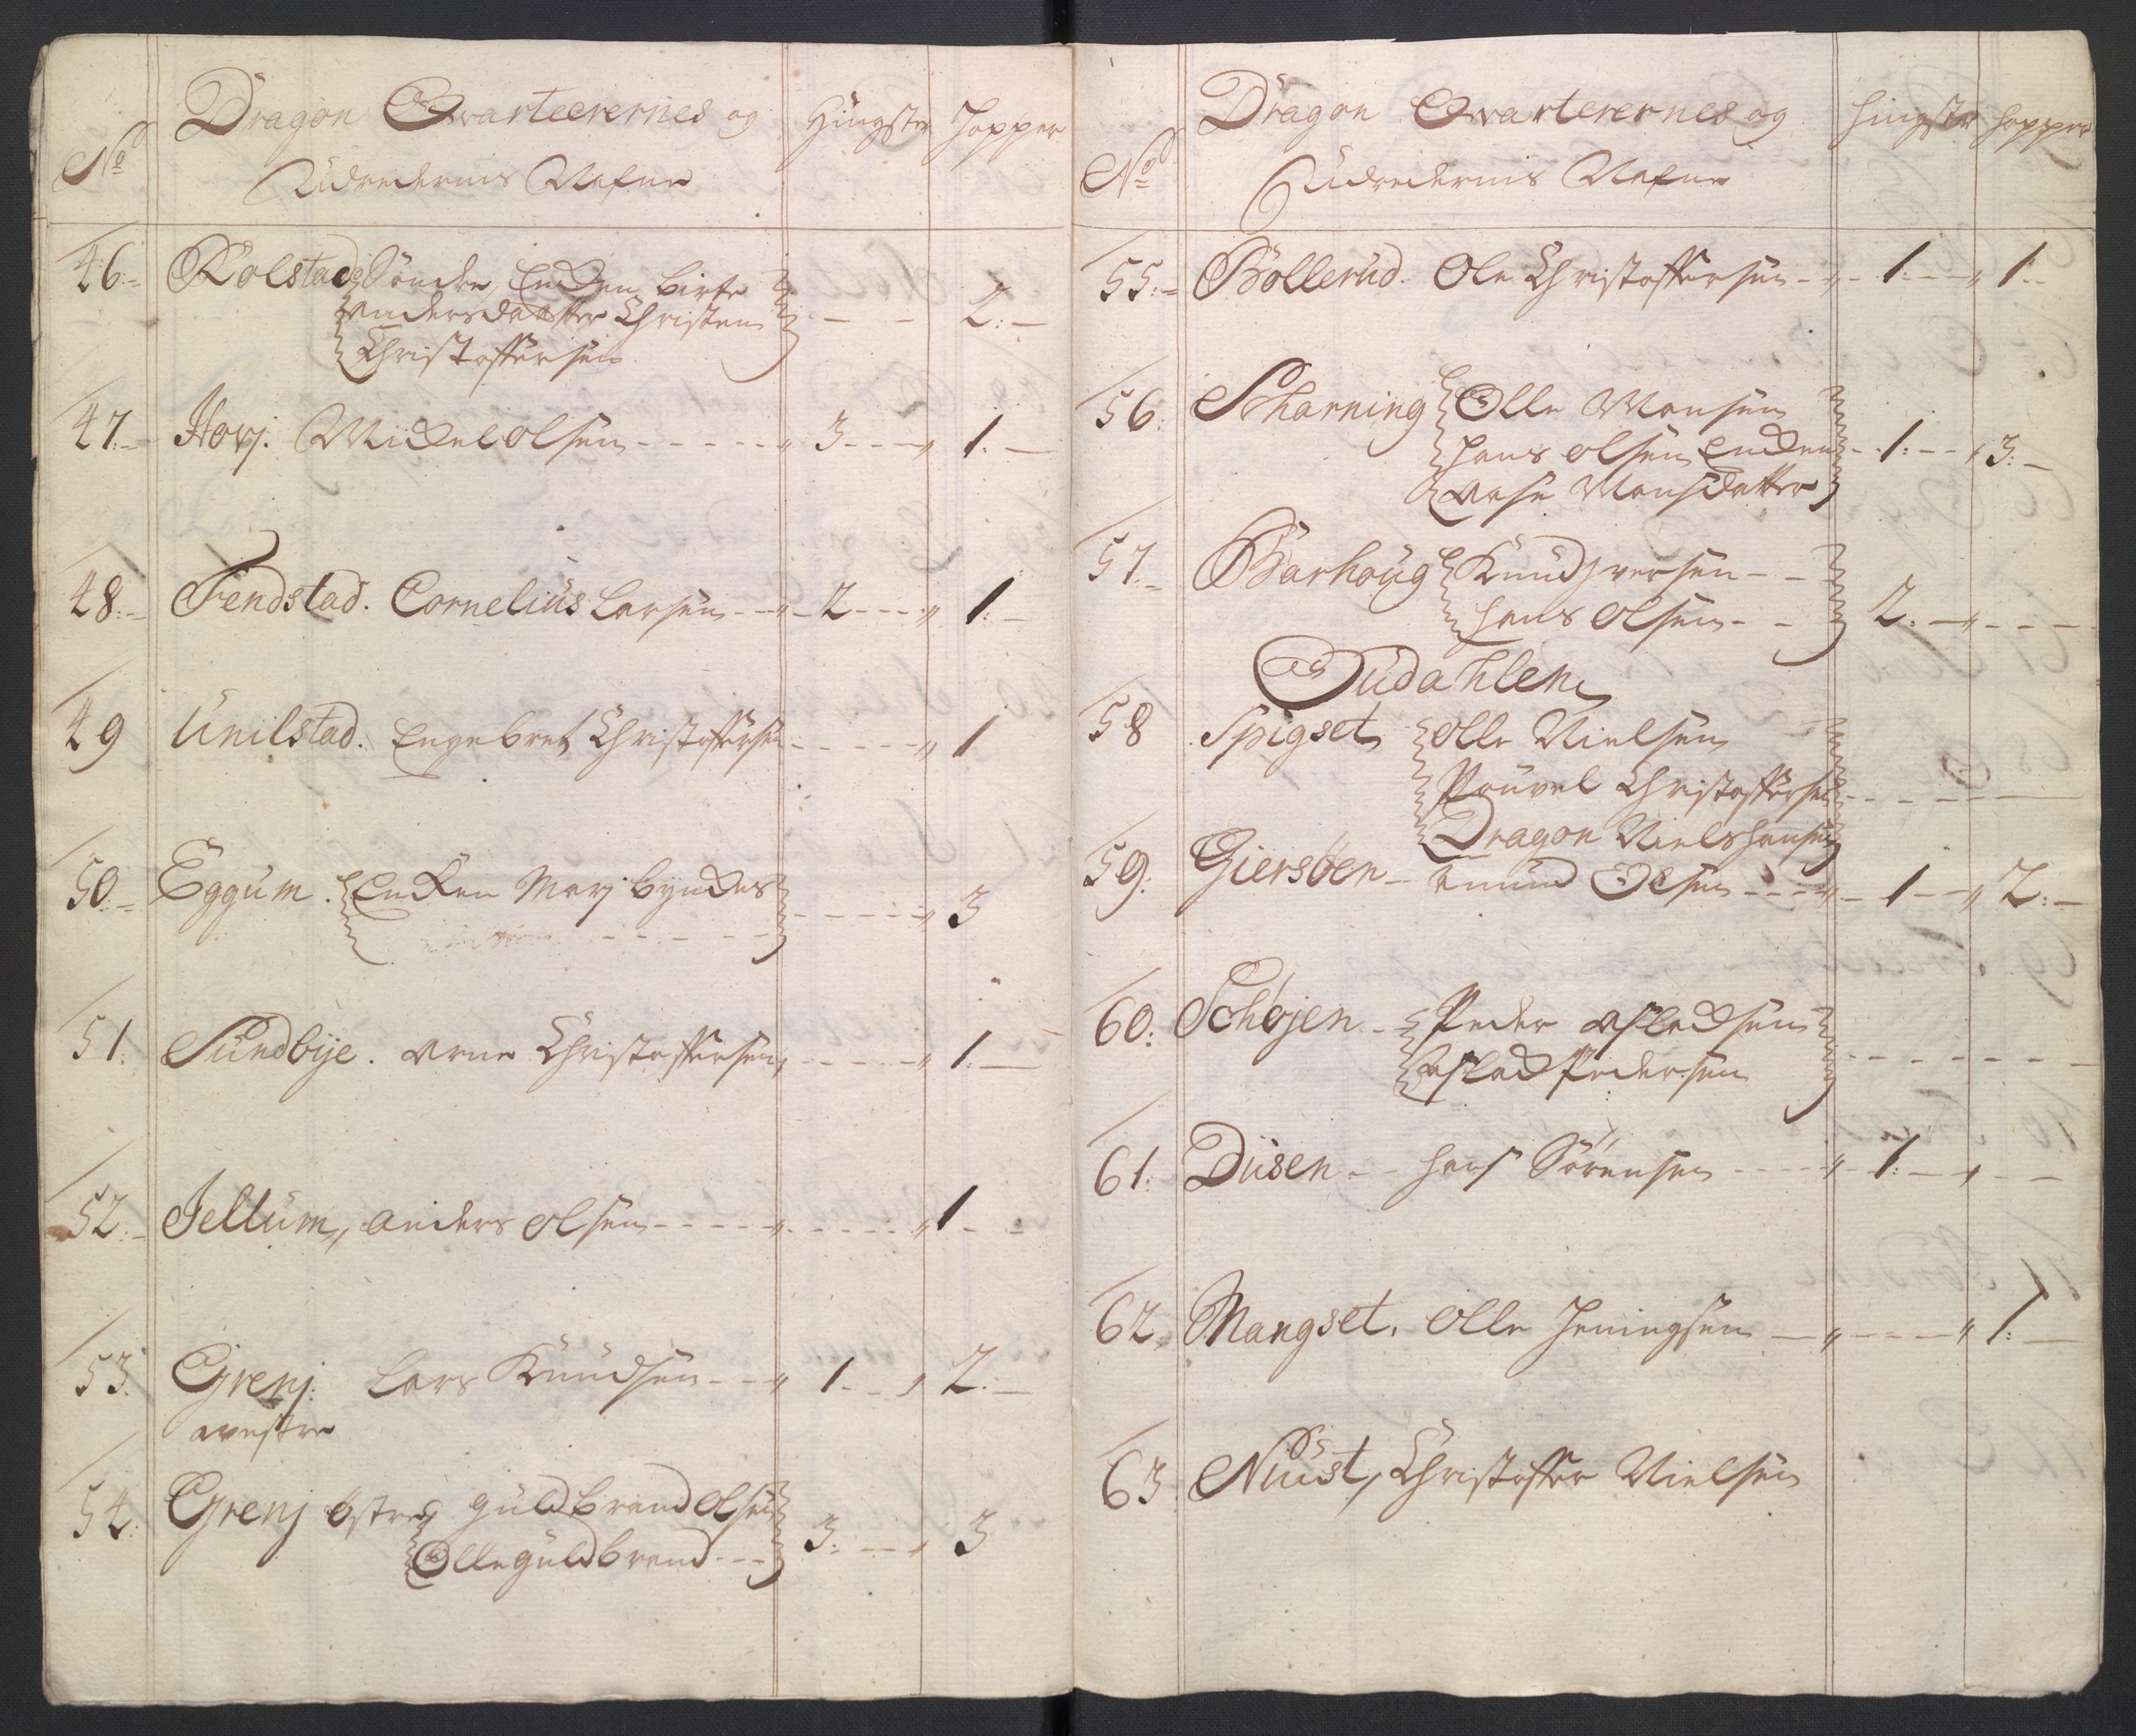 No
Dragon Qvarteerernes og
Hingster
Hopper
Udredernis Nafne
46:
Kolstad Söndre, Encken birte
Andersdaatter Christen
Christoffersen
2:
47:
Hovj. Mickel Olsen
3
1:
48:
Fendstad. Cornelius Larsen
2
1:
49
Unilstad. Engebret Christoffersen
1
50:
Eggum. Encken Marj byndes
3
51:
Sundbÿe. Arne Christoffersen
1:
52:
Jellum, Anders Olsen
1
53:
Grenj. Lars Knudsen
1
2:
westre
54:
Grenj östre, Guldbrand Olsen
Olle Guldbrand
3:
3
No
Dragon Qvarterernes og
Hingster
Hopper
Udredernis Nafne
55:
Bollerud. Ole Christoffersen
1:
1:
56:
Scharning Olle Monsen
Hans Olsen Encken
Aase Monsdatter
1:
3:
57:
Barhoug Knud Jversen
Hans Olsen
2:
Oudahlen
58
Spigset Olle Nielsen
Pouvel Christoffersen
Dragon Niels Hansen
59:
Giersöen Amund Olsen
1
2:
60:
Schøjen Peder Aslacksen
Aslack Pedersen
61:
Düsen Hans Sörensen
1:
62,
Mangset. Olle Heningsen
1:
63
Nüst, Christoffer Nielsen